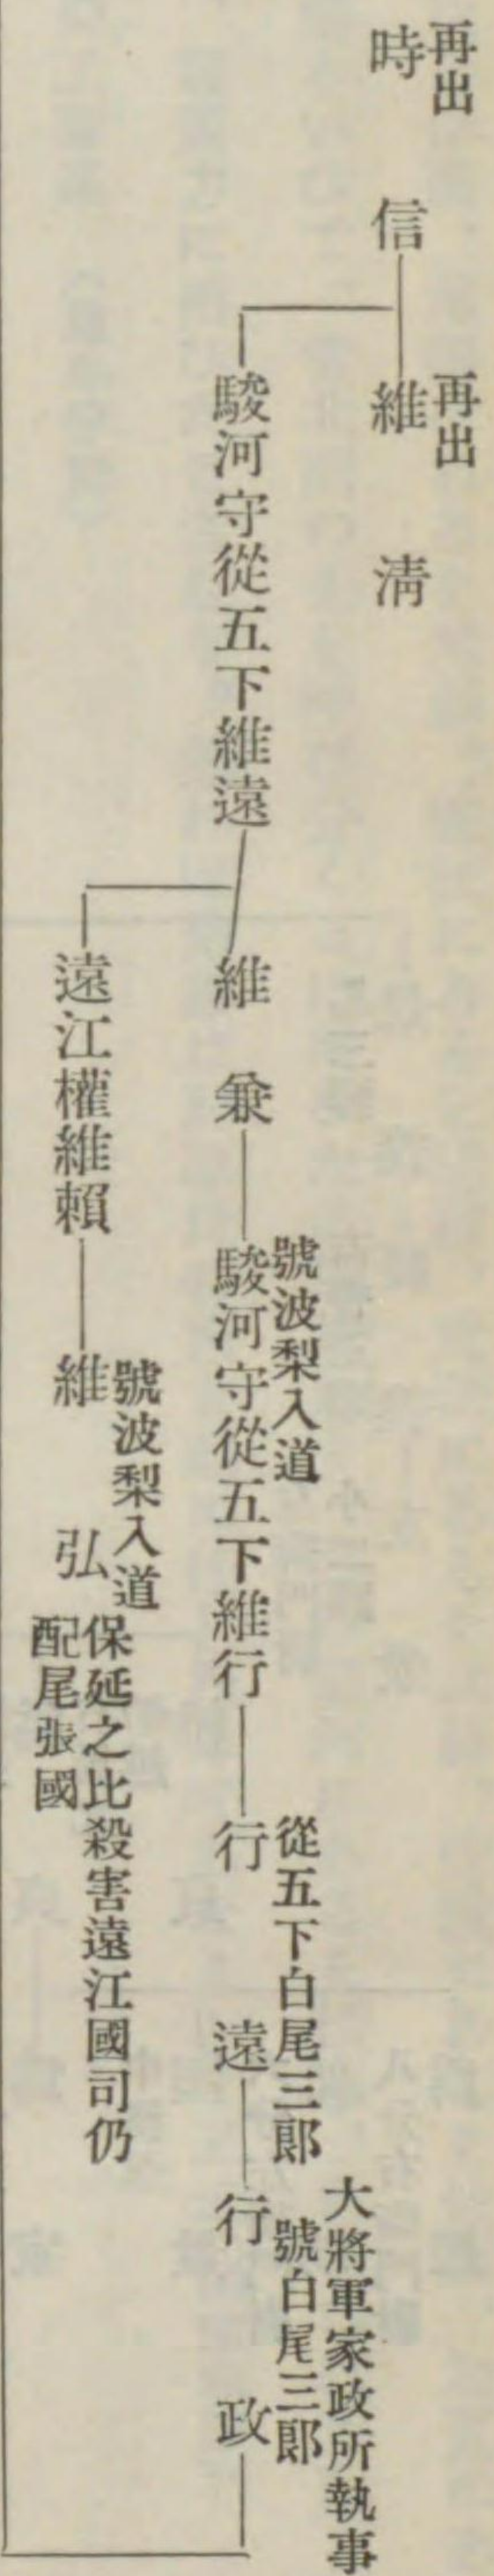 再出
時信
再出
維淸
駿河守從五下維遠
維兼
號波梨入道
駿河守從五下維行
從五下白尾三郎
行遠
大將軍家政所執事
號白尾三郎
行政
遠江權維賴
號波梨入道
維弘
保延之比殺害遠江國司仍
配尾張國